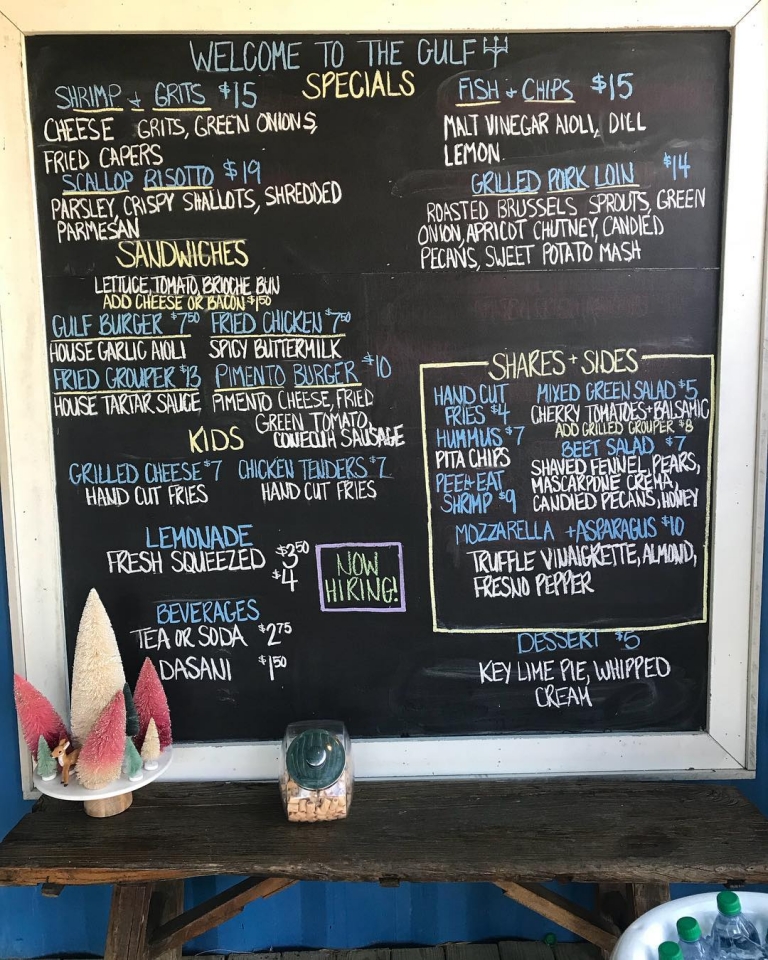 WELCOME TO THE GULF
SPECIALS
SHRIMP + GRITS $15
CHEESE GRITS, GREEN ONIONS,
FRIED CAPERS
SCALLOP RISOTTO $19
PARSLEY, CRISPY SHALLOTS, SHREDDED
PARMESAN
FISH + CHIPS $15
MALT VINEGAR AIOLI, DILL
LEMON
GRILLED PORK LOIN $14
ROASTED BRUSSELS SPROUTS, GREEN
ONION, APRICOT CHUTNEY, CANDIED
PECANS, SWEET POTATO MASH
SANDWICHES
LETTUCE, TOMATO, BRIOCHE BUN
ADD CHEESE OR BACON $1.50
GULF BURGER $7.50
HOUSE GARLIC AIOLI
FRIED CHICKEN $7.50
SPICY BUTTERMILK
FRIED GROUPER $13
HOUSE TARTAR SAUCE
PIMENTO BURGER $10
PIMENTO CHEESE, FRIED
GREEN TOMATO,
CONECUH SAUSAGE
KIDS
GRILLED CHEESE $7
HAND CUT FRIES
CHICKEN TENDERS $7
HAND CUT FRIES
LEMONADE
FRESH SQUEEZED $3.50
$4
NOW
HIRING!
BEVERAGES
TEA OR SODA $2.75
DASANI $1.50
SHARES + SIDES
HAND CUT
FRIES $4
HUMMUS $7
PITA CHIPS
PEEL+EAT
SHRIMP $9
MIXED GREEN SALAD $5
CHERRY TOMATOES+BALSAMIC
ADD GRILLED GROUPER $8
BEET SALAD $7
SHAVED FENNEL, PEARS,
MASCARPONE CREMA,
CANDIED PECANS, HONEY
MOZZARELLA + ASPARAGUS $10
TRUFFLE VINAIGRETTE, ALMOND,
FRESNO PEPPER
DESSERT $5
KEY LIME PIE, WHIPPED
CREAM